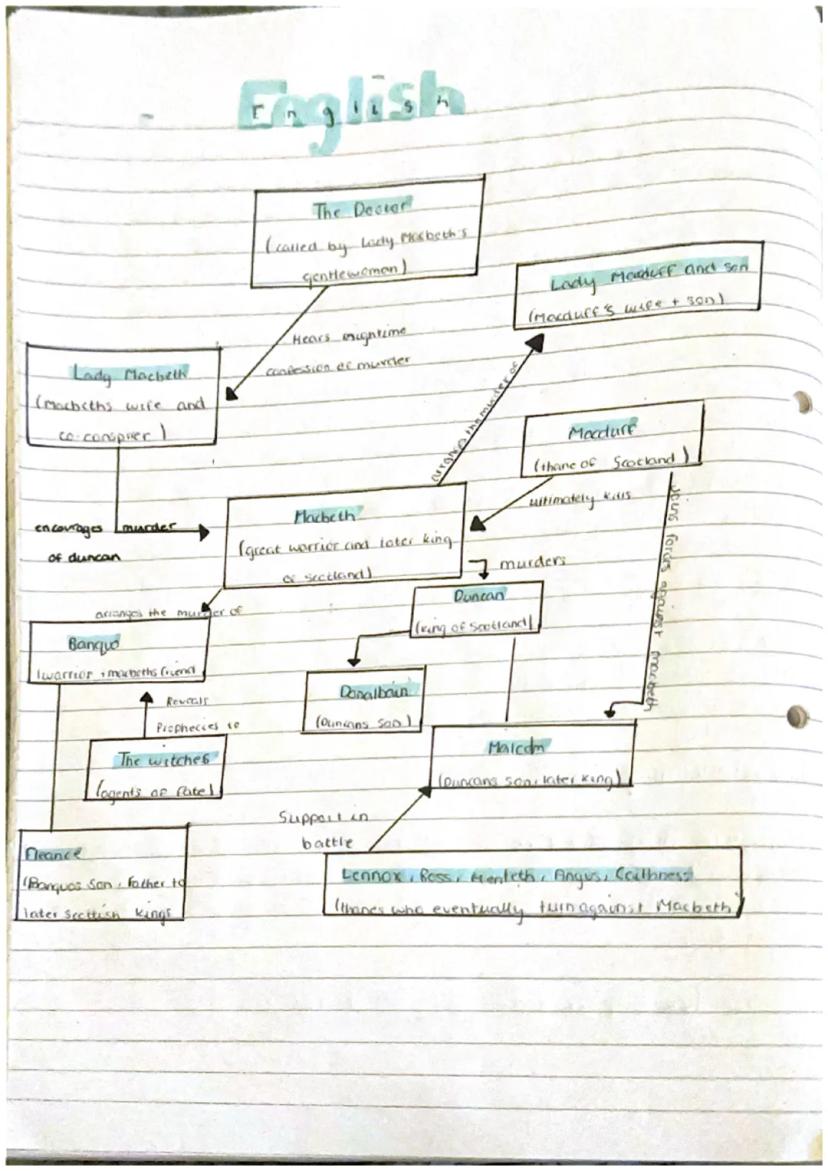 English
English
The Doctor
(called by Lady Macbeth's
gentlewoman)
Lady Macduff and son
(Macduff's wife + son)
Hears nightime
confession of murder
Lady Macbeth
(Macbeths wife and
co-conspirer)
arranges the murder of
Macduff
(thane of Scotland)
ultimately kills
joins forces against macbeth
encourages murder
of duncan
Macbeth
(great warrior and later king
of scotland)
murders
arranges the murder of
Duncan
(king of Scotland)
Banquo
(warrior + macbeths friend
Donalbain
(Duncans son)
Reveals
Prophecies to
The witches
(agents of fate)
Malcom
(Duncans son, later king)
Support in
battle
Fleance
(Banquos son, father to
later scottish kings
Lennox, Ross, Menteth, Angus, Caithness
(thanes who eventually turn against Macbeth)